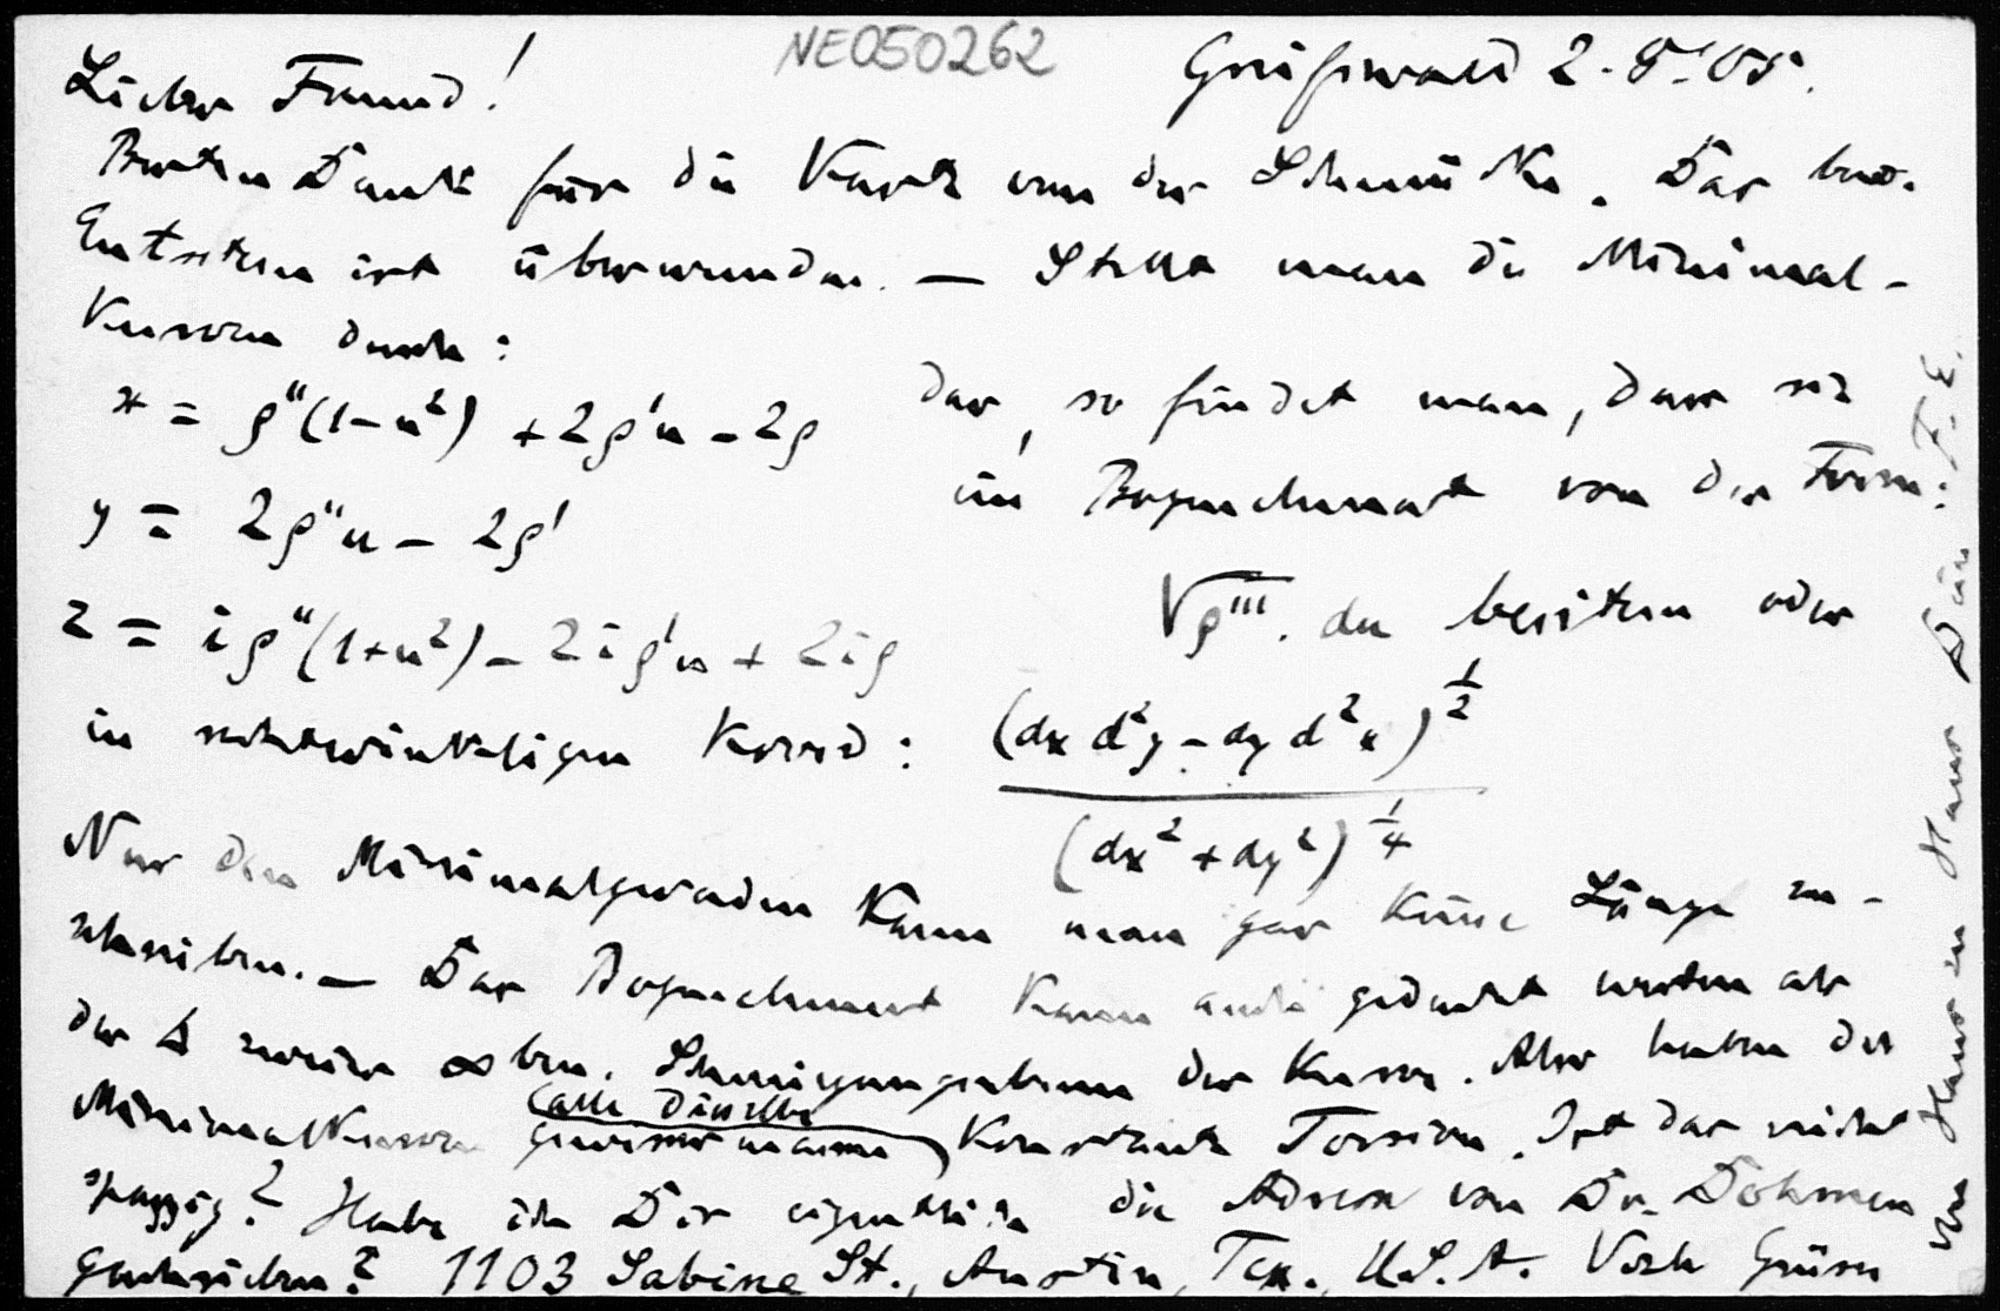 NE050262
Greifswald 2. 8. 05.
Lieber Freund!
Besten Dank für die Karte von der Schmücke. Das
Entsetzen ist überwunden. — Stellt man die Minimal-
Kurven durch:
x = ρ''(1-u²) + 2ρ'u - 2ρ
y = 2ρ''u - 2ρ'
z = iρ''(1+u²) - 2iρ'u + 2iρ
dar, so findet man, dass sie
ein Bogenelement von der Form:
√ρ''' . du besitzen oder
in rechtwinkeligen Koord: (dx d²y - dy d²x)^{1/2} / (dx² + dy²)^{1/4}
Nur den Minimalgeraden kann man gar keine Länge zu-
schreiben. — Das Bogenelement kann auch gedeutet werden als
der ∡ zweier ∞ ben. Schmiegungsebenen der Kurve. Also haben die
Minimalkurven gewissermassen (alle dieselbe) konstante Torsion. Ist das nicht
spassig? Habe ich Dir eigentlich die Adresse von Dr. Dohmen
geschrieben? 1103 Sabine St., Austin, Tex., U.S.A. Viele Grüsse
von Haus zu Haus Dein F. E.